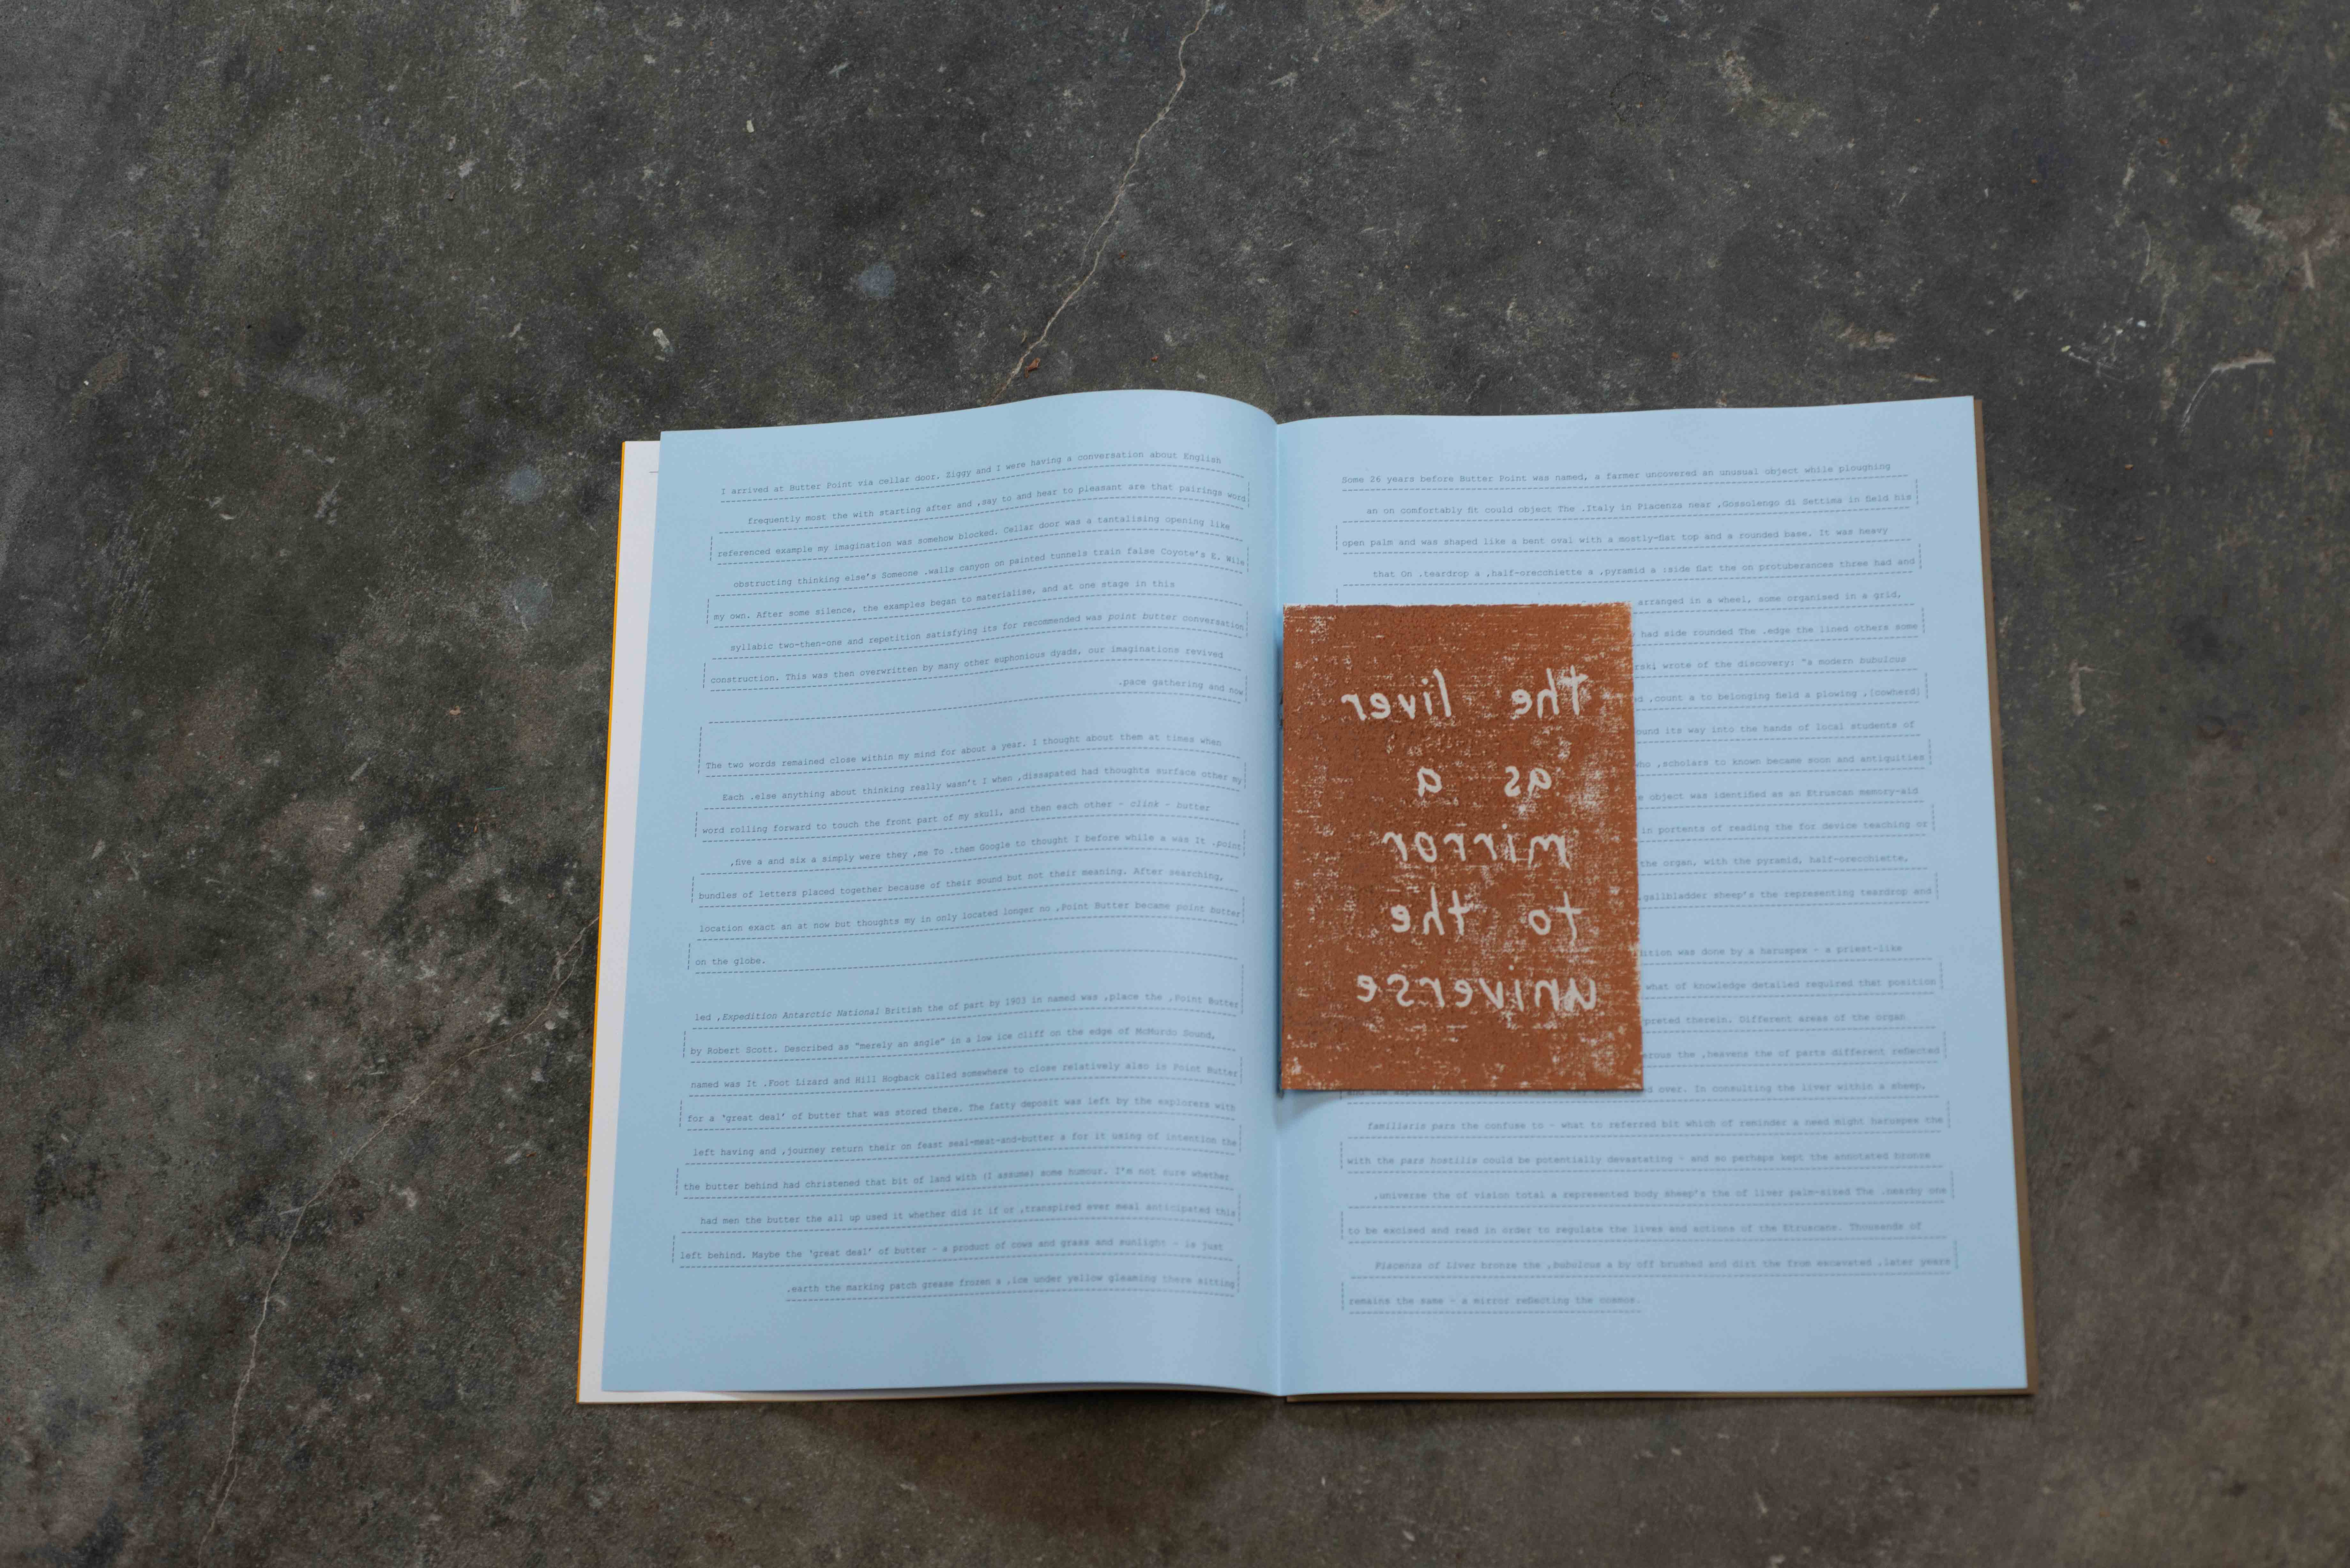 I arrived at Butter Point via cellar door. Ziggy and I were having a conversation about English
frequently most the with starting after and ,say to and hear to pleasant are that pairings word
referenced example my imagination was somehow blocked. Cellar door was a tantalising opening like
obstructing thinking else's Someone .walls canyon on painted tunnels train false Coyote's E. Wile
my own. After some silence, the examples began to materialise, and at one stage in this
syllabic two-then-one and repetition satisfying its for recommended was point butter conversation
construction. This was then overwritten by many other euphonious dyads, our imaginations revived
.pace gathering and now
The two words remained close within my mind for about a year. I thought about them at times when
Each .else anything about thinking really wasn't I when ,dissapated had thoughts surface other my
word rolling forward to touch the front part of my skull, and then each other – clink – butter
,five a and six a simply were they ,me To .them Google to thought I before while a was It .point
bundles of letters placed together because of their sound but not their meaning. After searching,
location exact an at now but thoughts my in only located longer no ,Point Butter became point butter
on the globe.
led ,Expedition Antarctic National British the of part by 1903 in named was ,place the ,Point Butter
by Robert Scott. Described as "merely an angle" in a low ice cliff on the edge of McMurdo Sound,
named was It .Foot Lizard and Hill Hogback called somewhere to close relatively also is Point Butter
for a 'great deal' of butter that was stored there. The fatty deposit was left by the explorers with
left having and ,journey return their on feast seal-meat-and-butter a for it using of intention the
the butter behind had christened that bit of land with (I assume) some humour. I'm not sure whether
had men the butter the all up used it whether did it if or ,transpired ever meal anticipated this
left behind. Maybe the 'great deal' of butter – a product of cows and grass and sunlight – is just
.earth the marking patch grease frozen a ,ice under yellow gleaming there sitting
Some 26 years before Butter Point was named, a farmer uncovered an unusual object while ploughing
an on comfortably fit could object The .Italy in Piacenza near ,Gossolengo di Settima in field his
open palm and was shaped like a bent oval with a mostly-flat top and a rounded base. It was heavy
that On .teardrop a ,half-orecchiette a ,pyramid a :side flat the on protuberances three had and
arranged in a wheel, some organised in a grid,
had side rounded The .edge the lined others some
wrote of the discovery: "a modern bubulcus
,count a to belonging field a plowing ,[cowherd]
its way into the hands of local students of
,scholars to known became soon and antiquities
object was identified as an Etruscan memory-aid
in portents of reading the for device teaching or
the organ, with the pyramid, half-orecchiette,
.gallbladder sheep's the representing teardrop and
was done by a haruspex – a priest-like
what of knowledge detailed required that position
therein. Different areas of the organ
the ,heavens the of parts different reflected
over. In consulting the liver within a sheep,
familiaris pars the confuse to – what to referred bit which of reminder a need might haruspex the
with the pars hostilis could be potentially devastating – and so perhaps kept the annotated bronze
,universe the of vision total a represented body sheep's the of liver palm-sized The .nearby one
to be excised and read in order to regulate the lives and actions of the Etruscans. Thousands of
Piacenza of Liver bronze the ,bubulcus a by off brushed and dirt the from excavated ,later years
remains the same – a mirror reflecting the cosmos.
the liver
as a
mirror
to the
universe